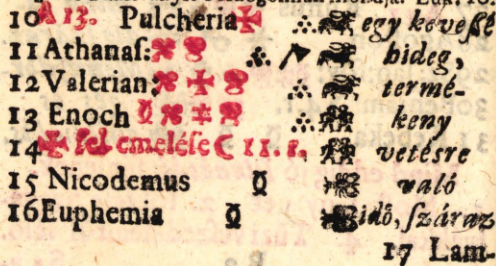 10 A 13. Pulcheria egy keveßé
11 Athanaſ: hideg,
12 Valerian: termé-
13 Enoch keny
14 ✠ fel emeléſe ☾ 11. 1. vetésre
15 Nicodemus való
16 Euphemia idő, ſzáraz
17 Lam-